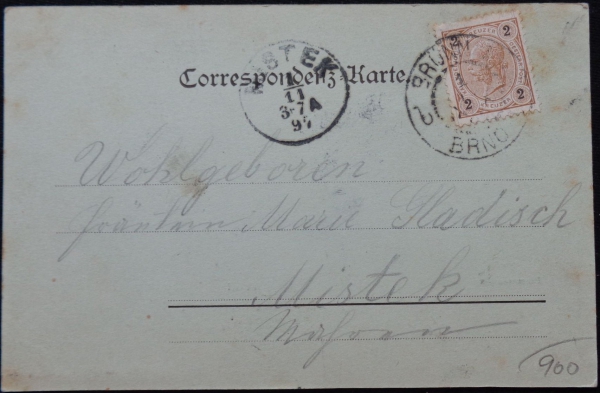 Correspondenz-Karte
MISTEK
11
3-7A
97
BRÜNN
BRNO
2
2
2
2
2
KREUZER
Wohlgeboren
Fräulein Marie Gladisch
Mistek
900